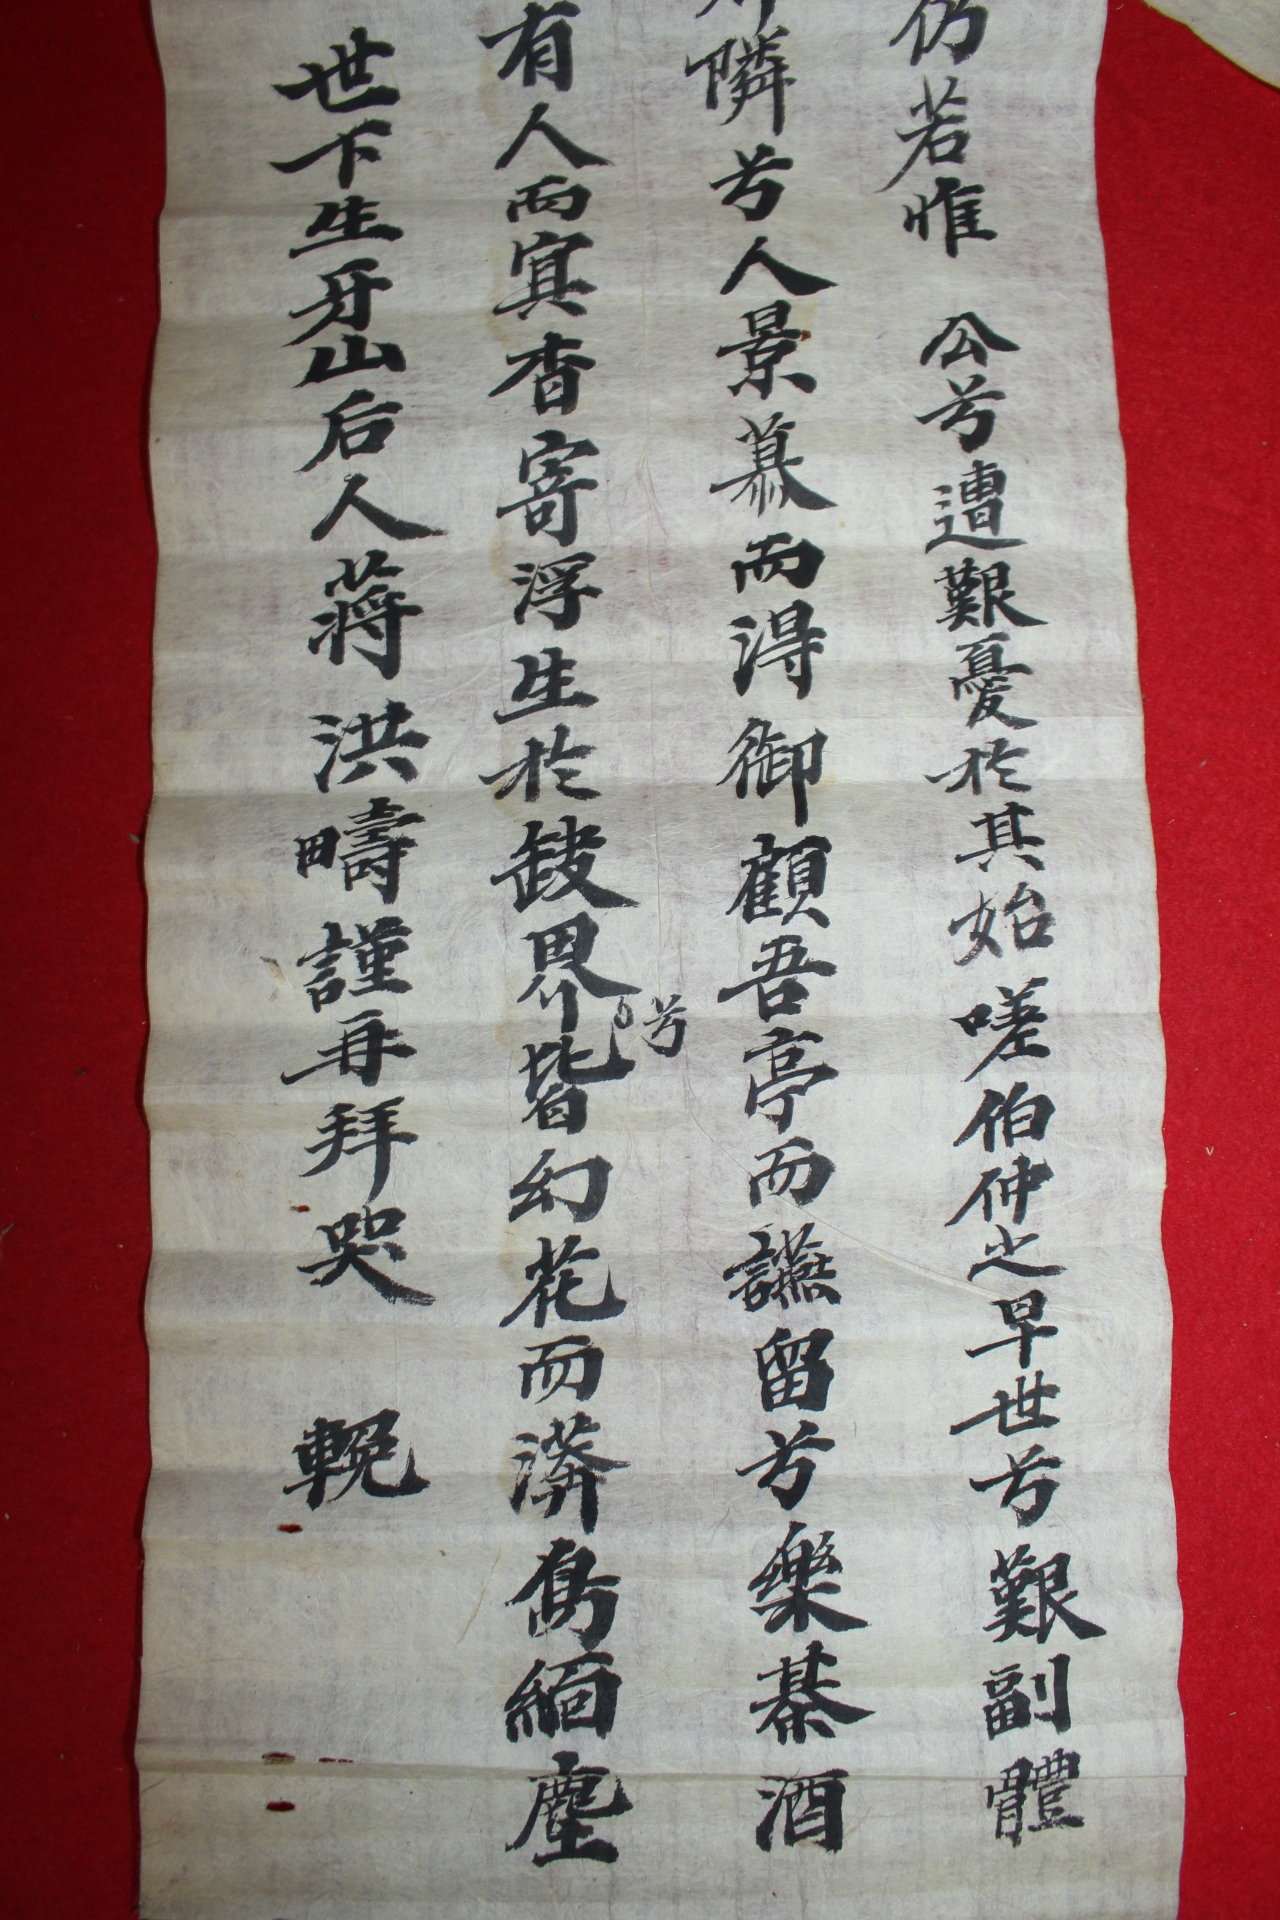 仍若惟 公兮遭艱憂於其始嗟伯仲之早世兮艱副體
隣兮人景慕而得御顧吾亭而讌留兮樂棊酒
有人而寘香寄浮生於缺界兮皆幻花而漭為緬塵
世下生牙山后人蔣洪疇謹再拜哭 輓